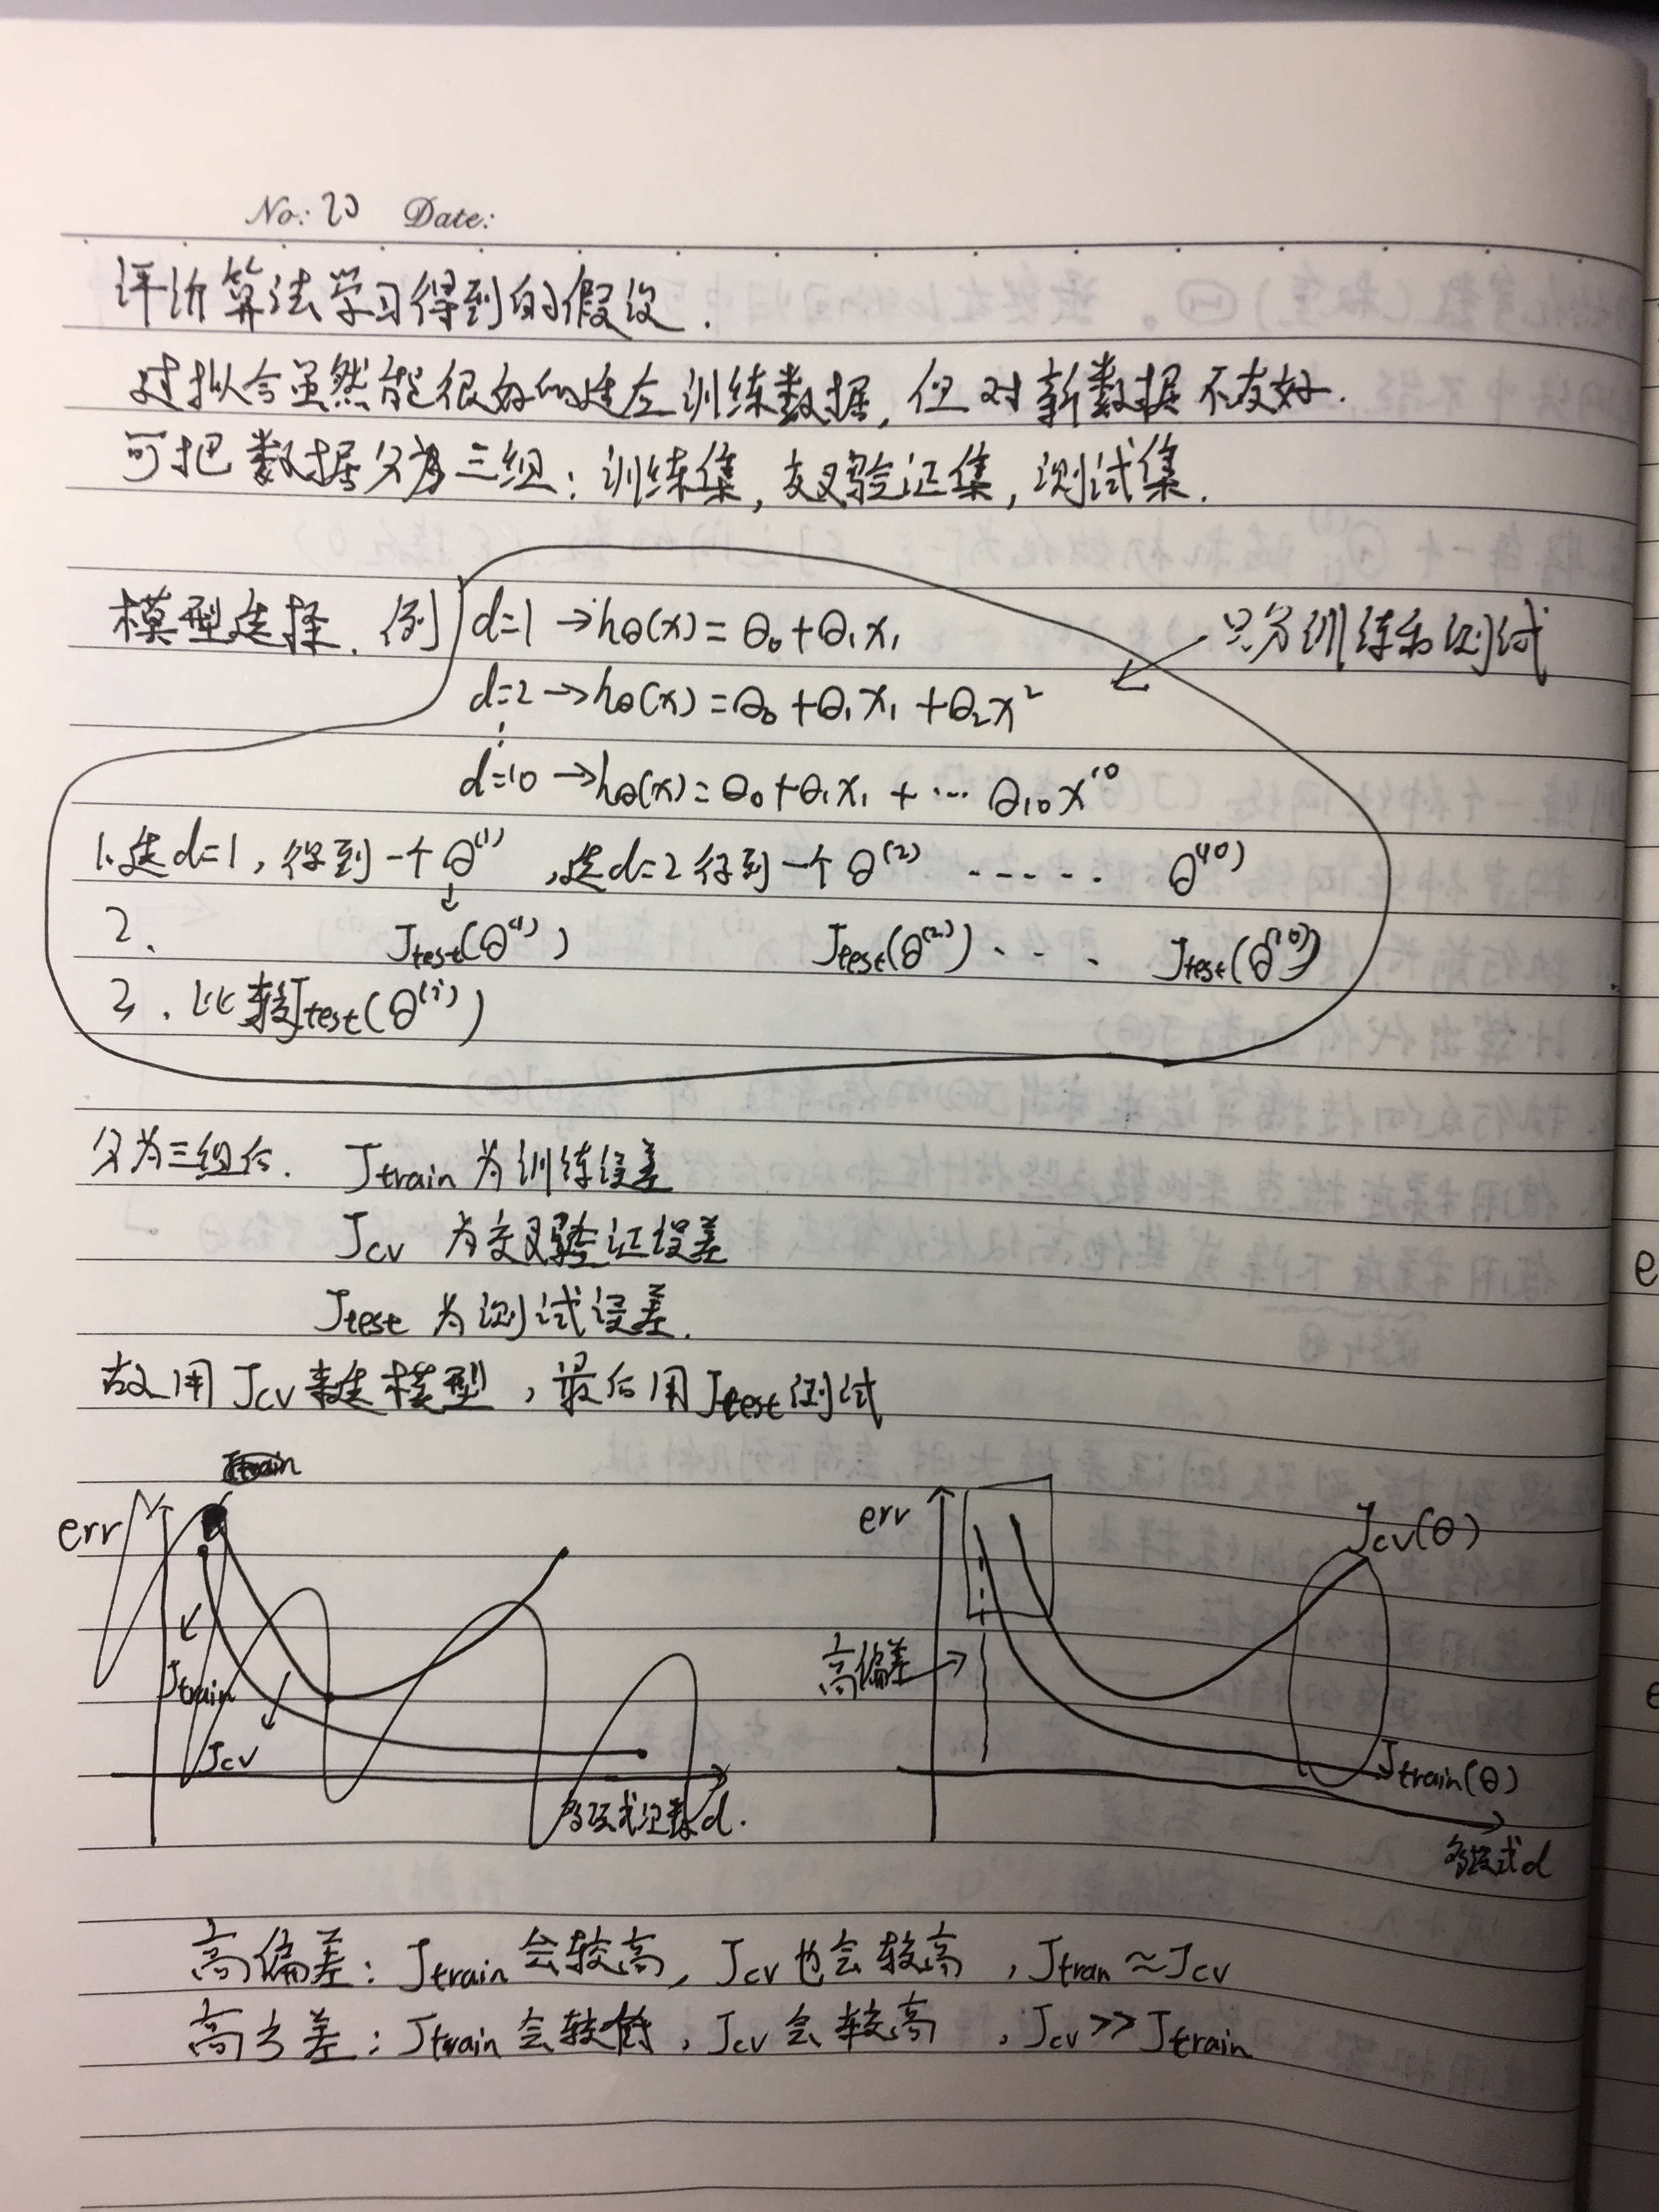 No: 20 Date:
评价算法学习得到的假设.
过拟合虽然能很好的适应训练数据, 但对新数据不友好.
可把数据分为三组: 训练集, 交叉验证集, 测试集.
模型选择. 例 d=1 → hθ(x) = θ₀ + θ₁x₁ 只分训练和测试
d=2 → hθ(x) = θ₀ + θ₁x₁ + θ₂x²
⋮
d=10 → hθ(x) = θ₀ + θ₁x₁ + ⋯ θ₁₀x¹⁰
1. 选d=1, 得到一个θ⁽¹⁾, 选d=2得到一个θ⁽²⁾ ····· θ⁽¹⁰⁾
↓
2. Jtest(θ⁽¹⁾) Jtest(θ⁽²⁾) · · · Jtest(θ⁽¹⁰⁾)
3. 比较Jtest(θ⁽ⁱ⁾)
分为三组后. Jtrain 为训练误差
Jcv 为交叉验证误差
Jtest 为测试误差.
故用 Jcv 来选模型, 最后用Jtest测试
err Jtrain Jcv d.
err Jcv(θ) 高偏差 Jtrain(θ) 多项式d
高偏差: Jtrain 会较高, Jcv 也会较高, Jtran ≈ Jcv
高方差: Jtrain 会较低, Jcv 会较高, Jcv >> Jtrain